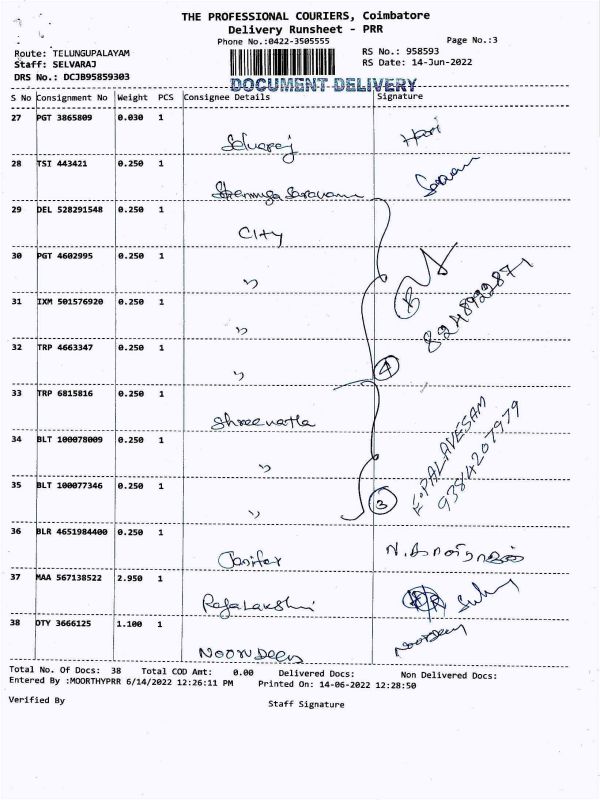 THE PROFESSIONAL COURIERS, Coimbatore
Delivery Runsheet - PRR
Phone No.:0422-3505555 Page No.:3
Route: TELUNGUPALAYAM RS No.: 958593
Staff: SELVARAJ RS Date: 14-Jun-2022
DRS No.: DCJB95859303
DOCUMENT DELIVERY
S No Consignment No Weight PCS Consignee Details Signature
27 PGT 3865809 0.030 1
Selvaraj Hari
28 TSI 443421 0.250 1
Shanmuga Saravana Saravan
29 DEL 528291548 0.250 1
City
30 PGT 4602995 0.250 1
"
8248922871
31 IXM 501576920 0.250 1
"
32 TRP 4663347 0.250 1
" 4
33 TRP 6815816 0.250 1
Shreevatla
34 BLT 100078009 0.250 1
"
F. PALAVESAM
9384207979
35 BLT 100077346 0.250 1
" 3
36 BLR 4651984400 0.250 1
Jenifer
37 MAA 567138522 2.950 1
Rajalakshmi
38 OTY 3666125 1.100 1
NOORUDEEN Noordeen
Total No. Of Docs: 38 Total COD Amt: 0.00 Delivered Docs: Non Delivered Docs:
Entered By :MOORTHYPRR 6/14/2022 12:26:11 PM Printed On: 14-06-2022 12:28:50
Verified By Staff Signature